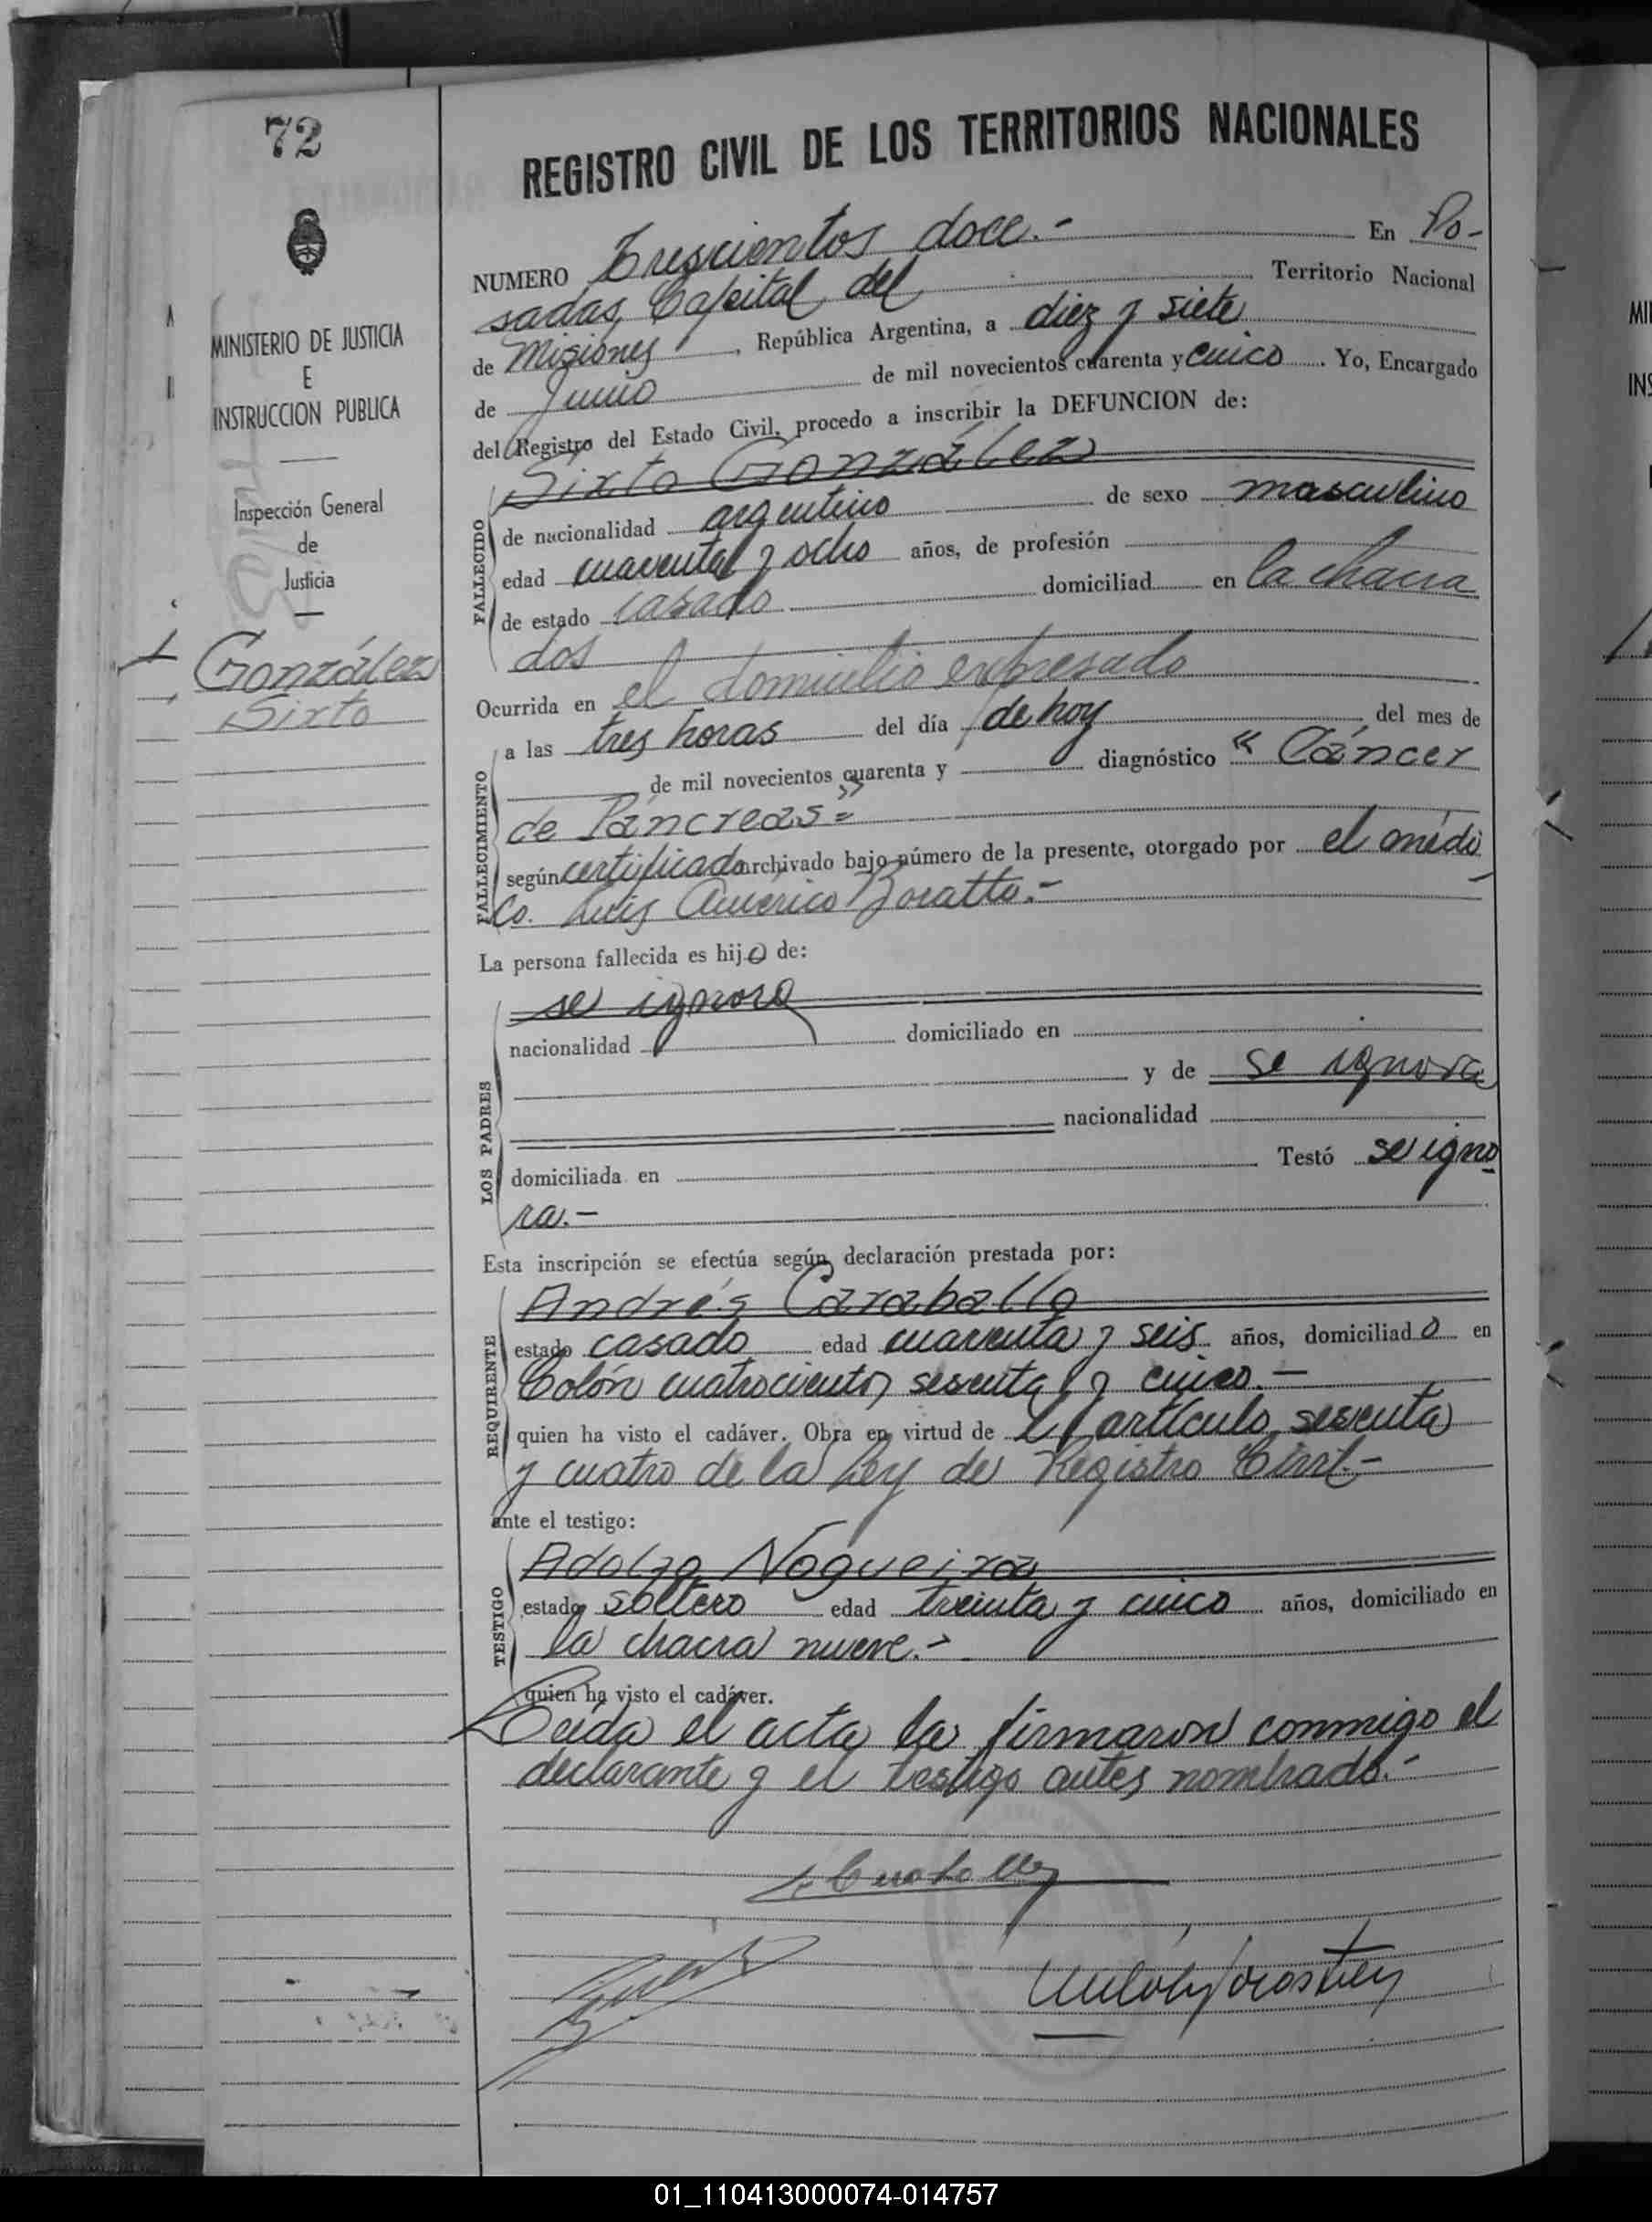 72
REGISTRO CIVIL DE LOS TERRITORIOS NACIONALES
NUMERO Trescientos doce.- En Po-
sadas, Capital del Territorio Nacional
de Misiones, República Argentina, a diez y siete
de Junio de mil novecientos cuarenta y cinco. Yo, Encargado
del Registro del Estado Civil, procedo a inscribir la DEFUNCION de:
MINISTERIO DE JUSTICIA
E
INSTRUCCION PUBLICA
Inspección General
de
Justicia
González
Sixto
FALLECIDO
Sixto González
de nacionalidad argentino de sexo masculino
edad cuarenta y ocho años, de profesión
de estado casado domiciliad en la chacra
dos
Ocurrida en el domicilio expresado
FALLECIMIENTO
a las tres horas del día de hoy del mes de
de mil novecientos cuarenta y diagnóstico "Cáncer
de Páncreas"=
según certificado archivado bajo número de la presente, otorgado por el médi
co. Luis Américo
La persona fallecida es hijo de:
LOS PADRES
se ignora
nacionalidad domiciliado en
y de se ignora
nacionalidad
domiciliada en Testó se igno
ra.-
Esta inscripción se efectúa según declaración prestada por:
REQUIRENTE
Andrés Caraballo
estado casado edad cuarenta y seis años, domiciliado en
Colón cuatrocientos sesenta y cinco.-
quien ha visto el cadáver. Obra en virtud de el artículo sesenta
y cuatro de la Ley de Registro Civil.-
ante el testigo:
TESTIGO
Adolfo Nogueira
estado soltero edad treinta y cinco años, domiciliado en
la chacra nueve.-
quien ha visto el cadáver.
Leída el acta la firmaron conmigo el
declarante y el testigo antes nombrado.-
01_110413000074-014757